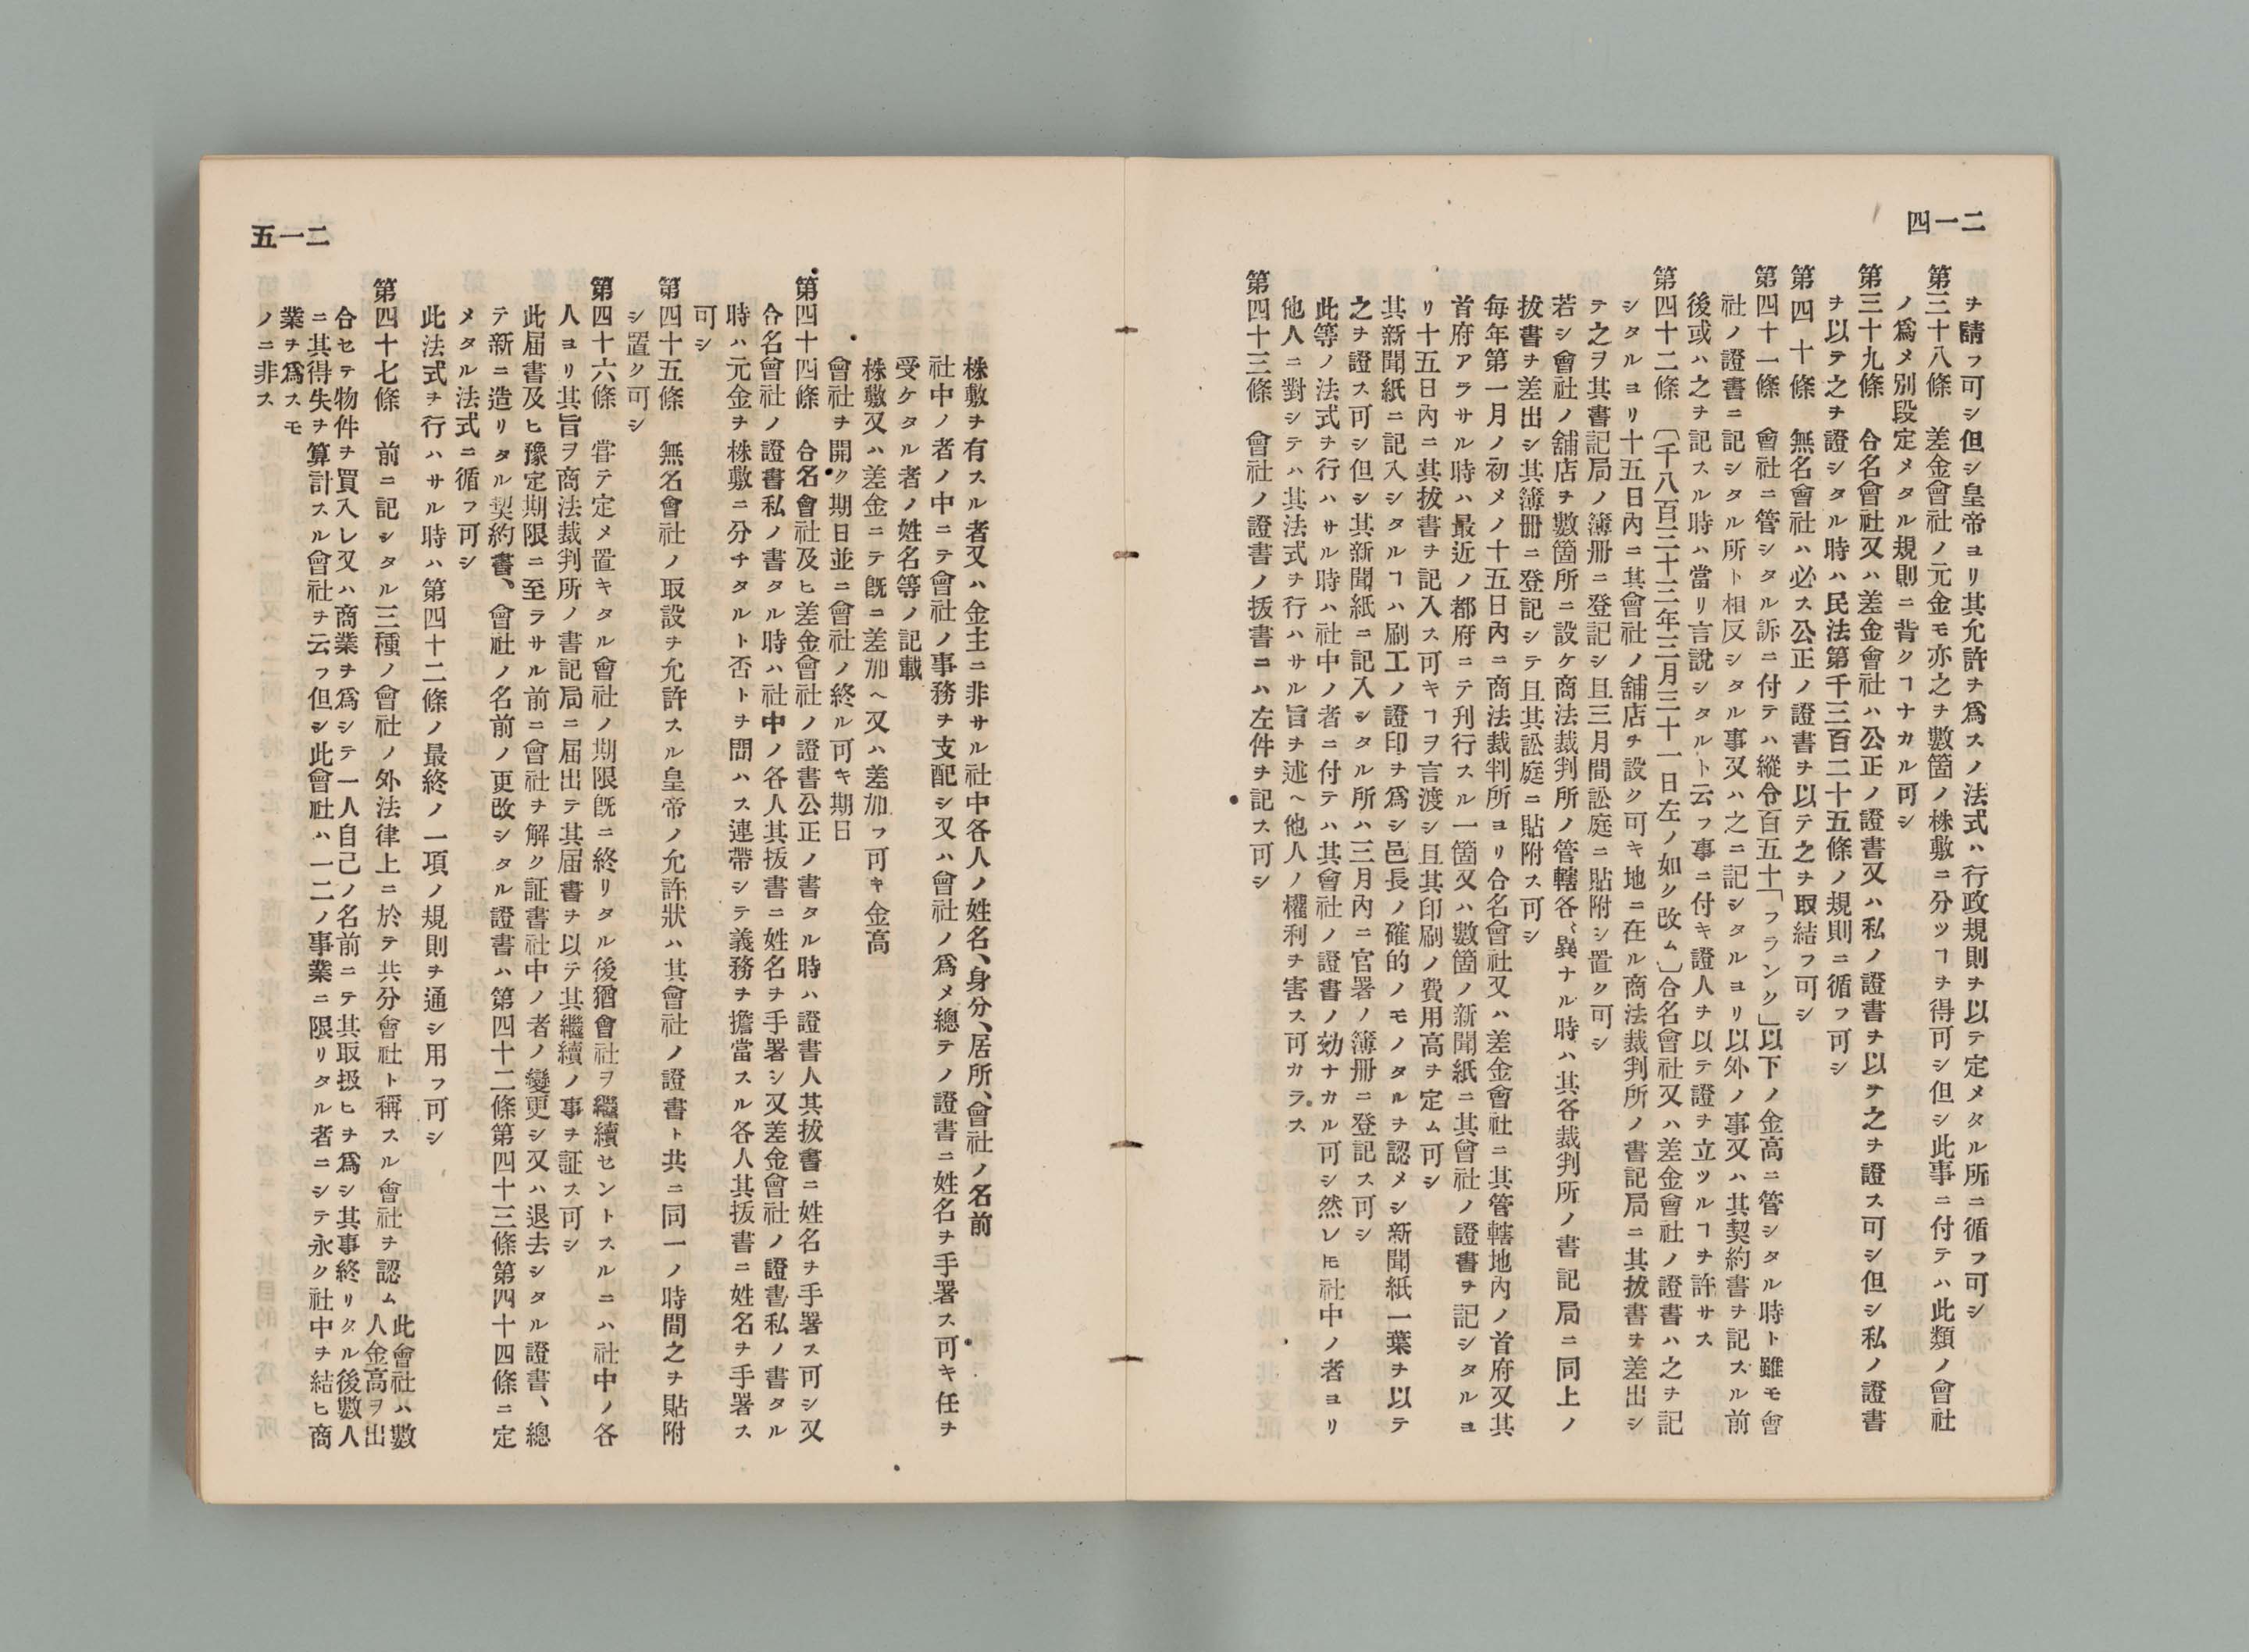 二一四
ヲ請フ可シ但シ皇帝ヨリ其允許ヲ爲スノ法式ハ行政規則ヲ以テ定メタル所ニ循フ可シ
第三十八條　差金會社ノ元金モ亦之ヲ數箇ノ株敷ニ分ツヿヲ得可シ但シ此事ニ付テハ此類ノ會社
ノ爲メ別段定メタル規則ニ背クヿナカル可シ
第三十九條　合名會社又ハ差金會社ハ公正ノ證書又ハ私ノ證書ヲ以テ之ヲ證ス可シ但シ私ノ證書
ヲ以テ之ヲ證シタル時ハ民法第千三百二十五條ノ規則ニ循フ可シ
第四十條　無名會社ハ必ス公正ノ證書ヲ以テ之ヲ取結フ可シ
第四十一條　會社ニ管シタル訴ニ付テハ縱令百五十「フランク」以下ノ金高ニ管シタル時ト雖モ會
社ノ證書ニ記シタル所ト相反シタル事又ハ之ニ記シタルヨリ以外ノ事又ハ其契約書ヲ記スル前
後或ハ之ヲ記スル時ハ當リ言說シタルト云フ事ニ付キ證人ヲ以テ證ヲ立ツルヿヲ許サス
第四十二條　〔千八百三十三年三月三十一日左ノ如ク改ム〕合名會社又ハ差金會社ノ證書ハ之ヲ記
シタルヨリ十五日內ニ其會社ノ舗店ヲ設ク可キ地ニ在ル商法裁判所ノ書記局ニ其拔書ヲ差出シ
テ之ヲ其書記局ノ簿册ニ登記シ且三月間訟庭ニ貼附シ置ク可シ
若シ會社ノ舖店ヲ數箇所ニ設ケ商法裁判所ノ管轄各〻異ナル時ハ其各裁判所ノ書記局ニ同上ノ
拔書ヲ差出シ其簿册ニ登記シテ且其訟庭ニ貼附ス可シ
每年第一月ノ初メノ十五日內ニ商法裁判所ヨリ合名會社又ハ差金會社ニ其管轄地內ノ首府又其
首府アラサル時ハ最近ノ都府ニテ刊行スル一箇又ハ數箇ノ新聞紙ニ其會社ノ證書ヲ記シタルヨ
リ十五日內ニ其拔書ヲ記入ス可キヿヲ言渡シ且其印刷ノ費用高ヲ定ム可シ
其新聞紙ニ記入シタルヿハ刷工ノ證印ヲ爲シ邑長ノ確的ノモノタルヲ認メシ新聞紙一葉ヲ以テ
之ヲ證ス可シ但シ其新聞紙ニ記入シタル所ハ三月內ニ官署ノ簿册ニ登記ス可シ
此等ノ法式ヲ行ハサル時ハ社中ノ者ニ付テハ其會社ノ證書ノ効ナカル可シ然レ𪜈社中ノ者ヨリ
他人ニ對シテハ其法式ヲ行ハサル旨ヲ述ヘ他人ノ權利ヲ害ス可カラス
第四十三條　會社ノ證書ノ拔書ニハ左件ヲ記ス可シ
二一五
株敷ヲ有スル者又ハ金主ニ非サル社中各人ノ姓名、身分、居所、會社ノ名前
社中ノ者ノ中ニテ會社ノ事務ヲ支配シ又ハ會社ノ爲メ總テノ證書ニ姓名ヲ手署ス可キ任ヲ
受ケタル者ノ姓名等ノ記載
株敷又ハ差金ニテ旣ニ差加ヘ又ハ差加フ可キ金高
會社ヲ開ク期日並ニ會社ノ終ル可キ期日
第四十四條　合名會社及ヒ差金會社ノ證書公正ノ書タル時ハ證書人其拔書ニ姓名ヲ手署ス可シ又
合名會社ノ證書私ノ書タル時ハ社中ノ各人其拔書ニ姓名ヲ手署シ又差金會社ノ證書私ノ書タル
時ハ元金ヲ株敷ニ分チタルト否トヲ問ハス連帶シテ義務ヲ擔當スル各人其拔書ニ姓名ヲ手署ス
可シ
第四十五條　無名會社ノ取設ヲ允許スル皇帝ノ允許狀ハ其會社ノ證書ト共ニ同一ノ時間之ヲ貼附
シ置ク可シ
第四十六條　嘗テ定メ置キタル會社ノ期限旣ニ終リタル後猶會社ヲ繼續セントスルニハ社中ノ各
人ヨリ其旨ヲ商法裁判所ノ書記局ニ届出テ其届書ヲ以テ其繼續ノ事ヲ証ス可シ
此届書及ヒ豫定期限ニ至ラサル前ニ會社ヲ解ク証書社中ノ者ノ變更シ又ハ退去シタル證書、總
テ新ニ造リタル契約書、會社ノ名前ノ更改シタル證書ハ第四十二條第四十三條第四十四條ニ定
メタル法式ニ循フ可シ
此法式ヲ行ハサル時ハ第四十二條ノ最終ノ一項ノ規則ヲ通シ用フ可シ
第四十七條　前ニ記シタル三種ノ會社ノ外法律上ニ於テ共分會社ト稱スル會社ヲ認ム此會社ハ數
人金高ヲ出
合セテ物件ヲ買入レ又ハ商業ヲ爲シテ一人自己ノ名前ニテ其取扱ヒヲ爲シ其事終リタル後數人
ニ其得失ヲ算計スル會社ヲ云フ但シ此會社ハ一二ノ事業ニ限リタル者ニシテ永ク社中ヲ結ヒ商
業ヲ爲スモ
ノニ非ス